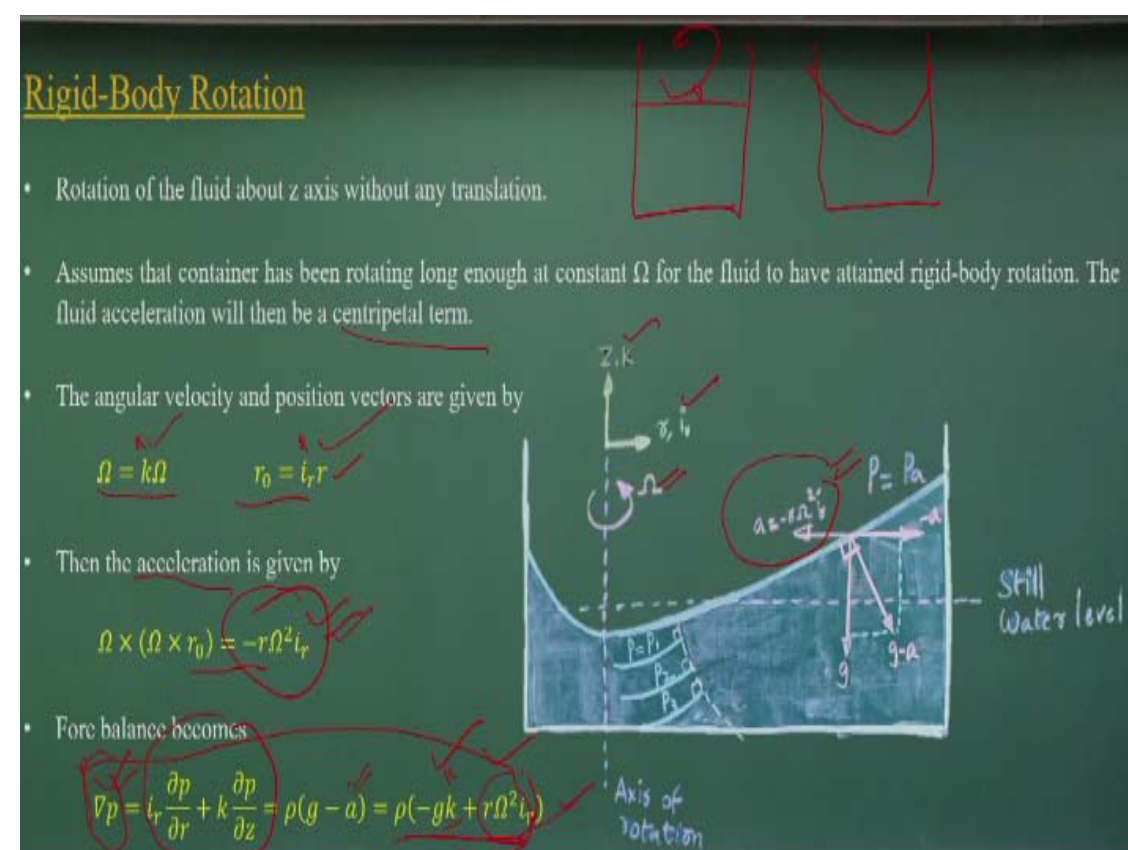 Rigid-Body Rotation
• Rotation of the fluid about z axis without any translation.
• Assumes that container has been rotating long enough at constant Ω for the fluid to have attained rigid-body rotation. The
fluid acceleration will then be a centripetal term.
• The angular velocity and position vectors are given by
Ω = kΩ r₀ = iᵣr
• Then the acceleration is given by
Ω × (Ω × r₀) = −rΩ²iᵣ
• Fore balance becomes
∇p = iᵣ ∂p/∂r + k ∂p/∂z = ρ(g − a) = ρ(−gk + rΩ²iᵣ)
Z, k
r, iᵣ
Ω
a = -rΩ²iᵣ
P = Pa
-a
g
g-a
Still
Water level
P=P₁
P₂
P₃
Axis of
rotation